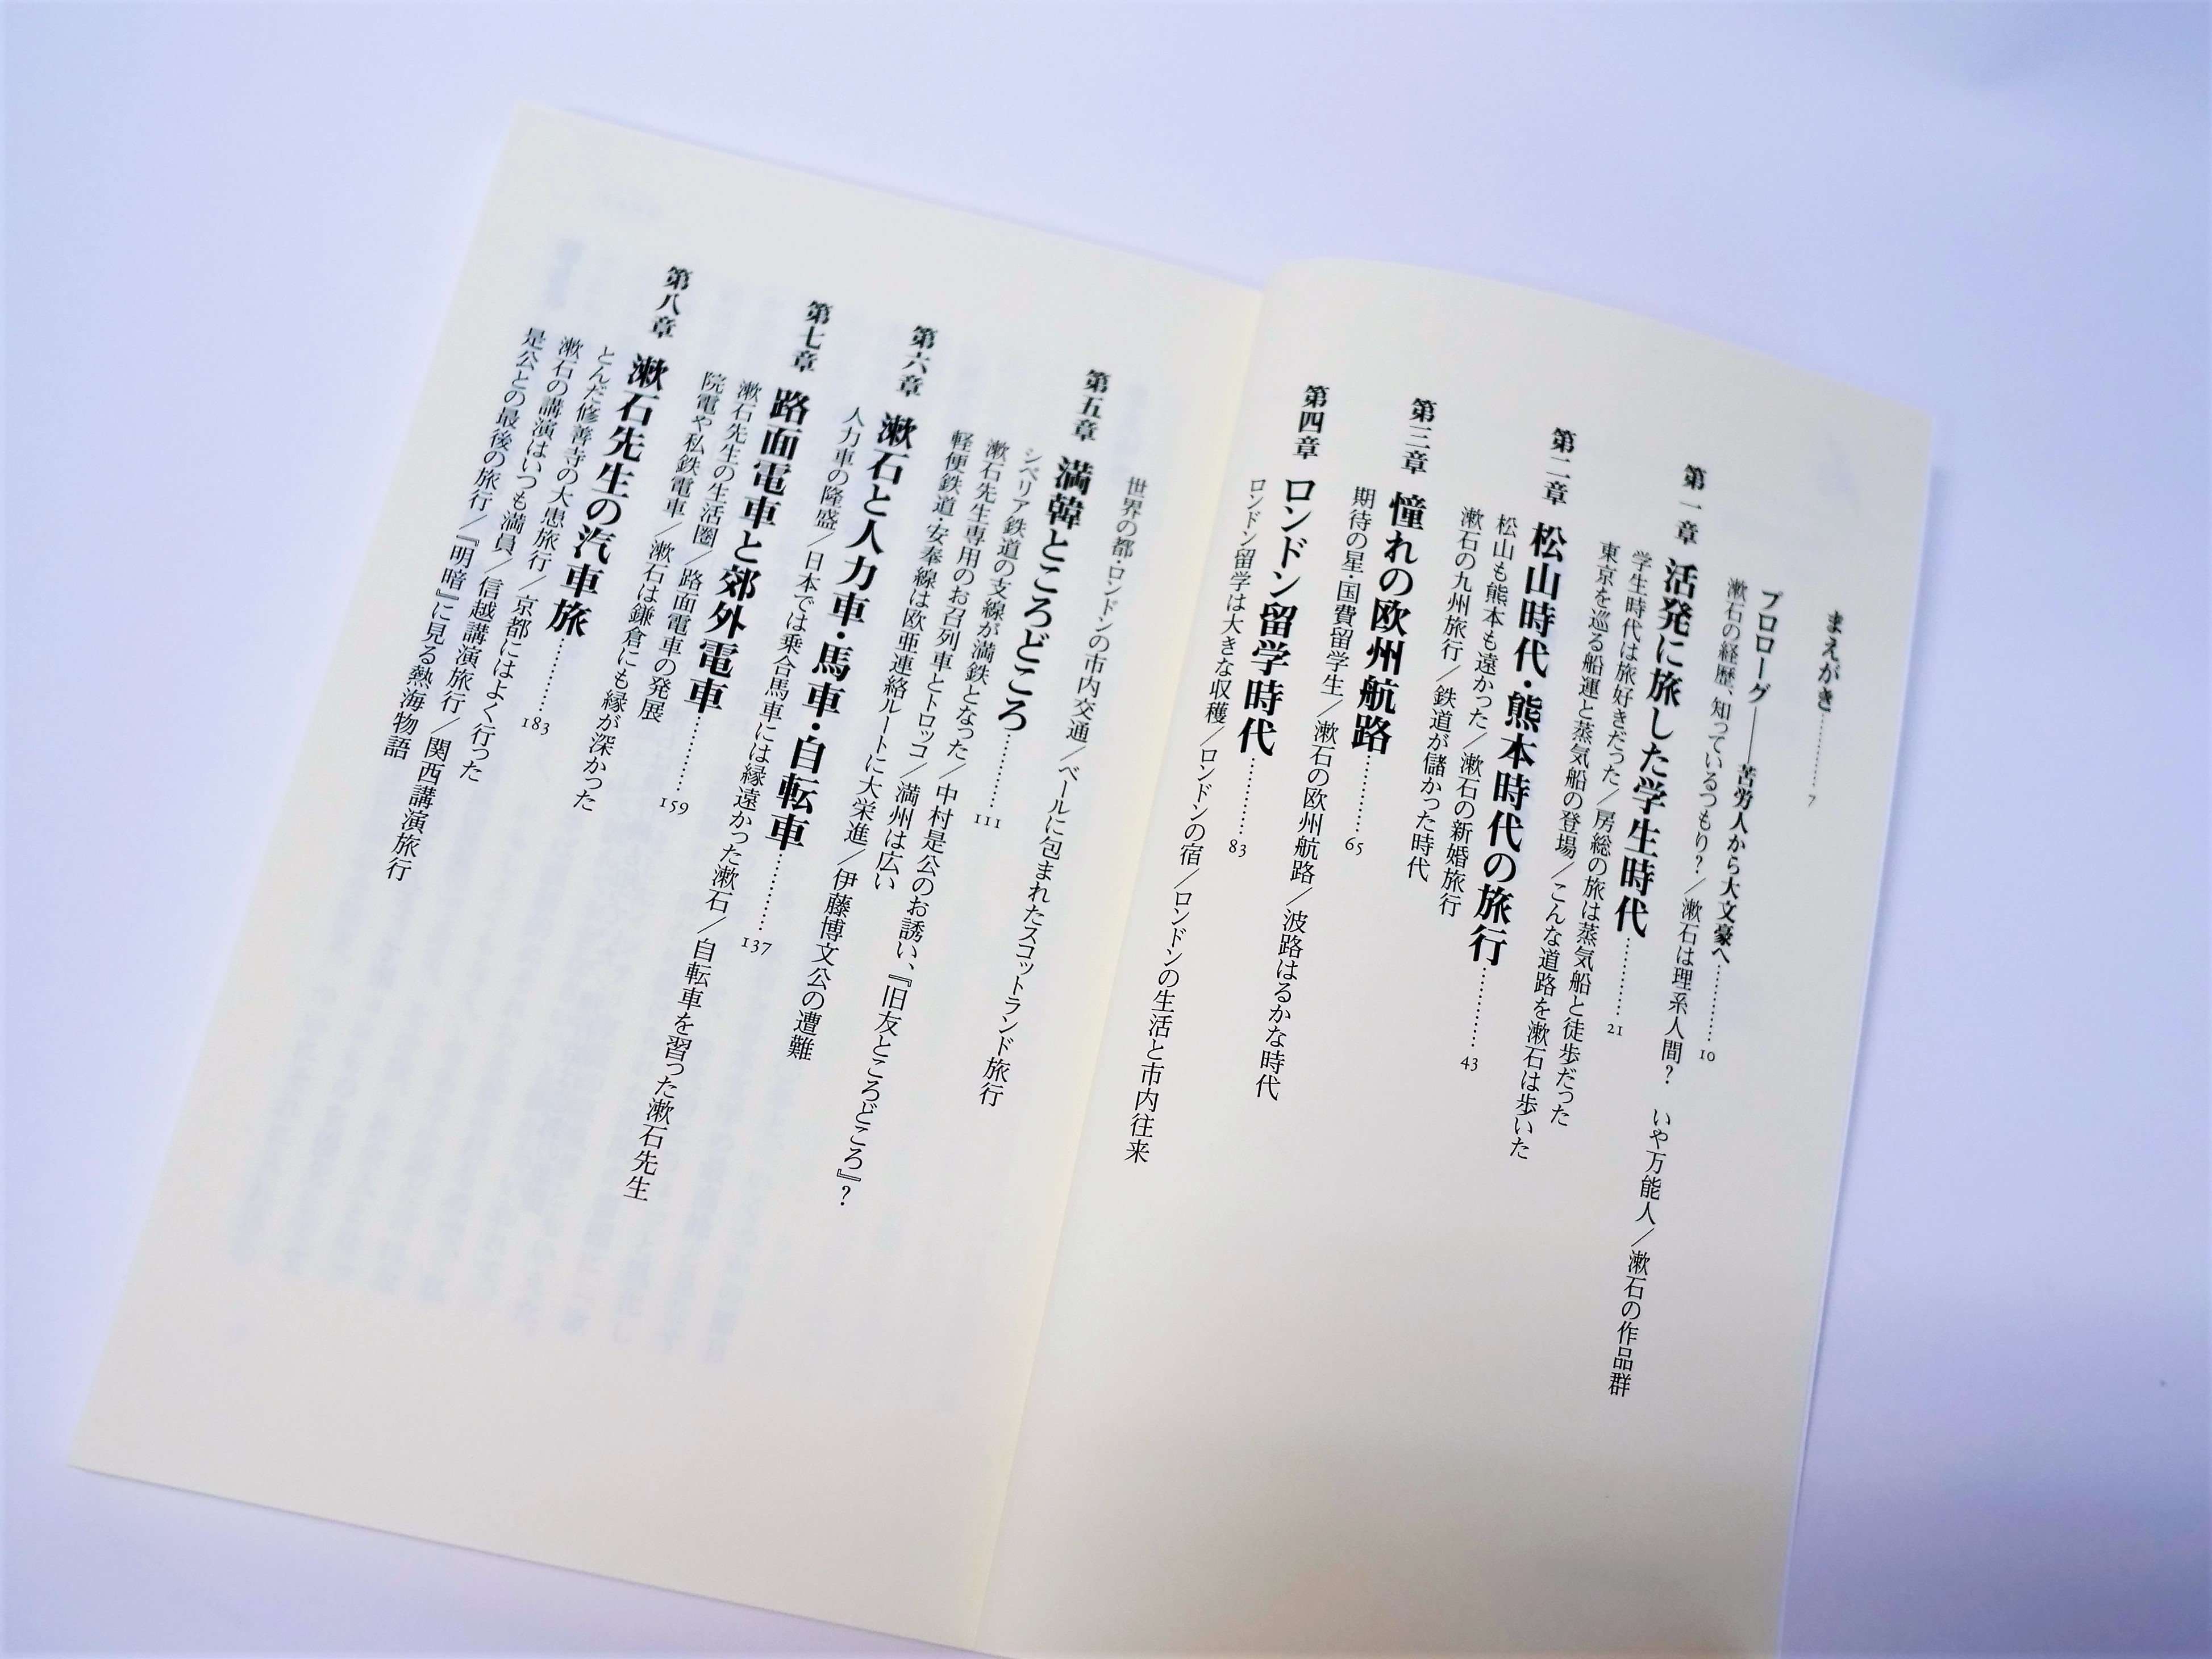 まえがき…………7
プロローグ――苦労人から大文豪へ…………10
漱石の経歴、知っているつもり?／漱石は理系人間? いや万能人／漱石の作品群
第一章 活発に旅した学生時代…………21
学生時代は旅好きだった／房総の旅は蒸気船と徒歩だった
東京を巡る船運と蒸気船の登場／こんな道路を漱石は歩いた
第二章 松山時代・熊本時代の旅行…………43
松山も熊本も遠かった／漱石の新婚旅行
漱石の九州旅行／鉄道が儲かった時代
第三章 憧れの欧州航路…………65
期待の星・国費留学生／漱石の欧州航路／波路はるかな時代
第四章 ロンドン留学時代…………83
ロンドン留学は大きな収穫／ロンドンの宿／ロンドンの生活と市内往来
世界の都・ロンドンの市内交通／ベールに包まれたスコットランド旅行
第五章 満韓ところどころ…………111
シベリア鉄道の支線が満鉄となった／中村是公のお誘い、『旧友ところどころ』?
漱石先生専用のお召列車とトロッコ／満州は広い
軽便鉄道・安奉線は欧亜連絡ルートに大栄進／伊藤博文公の遭難
第六章 漱石と人力車・馬車・自転車…………137
人力車の隆盛／日本では乗合馬車には縁遠かった漱石／自転車を習った漱石先生
第七章 路面電車と郊外電車…………159
漱石先生の生活圏／路面電車の発展
院電や私鉄電車／漱石は鎌倉にも縁が深かった
第八章 漱石先生の汽車旅…………183
とんだ修善寺の大患旅行／京都にはよく行った
漱石の講演はいつも満員／信越講演旅行／関西講演旅行
是公との最後の旅行／『明暗』に見る熱海物語